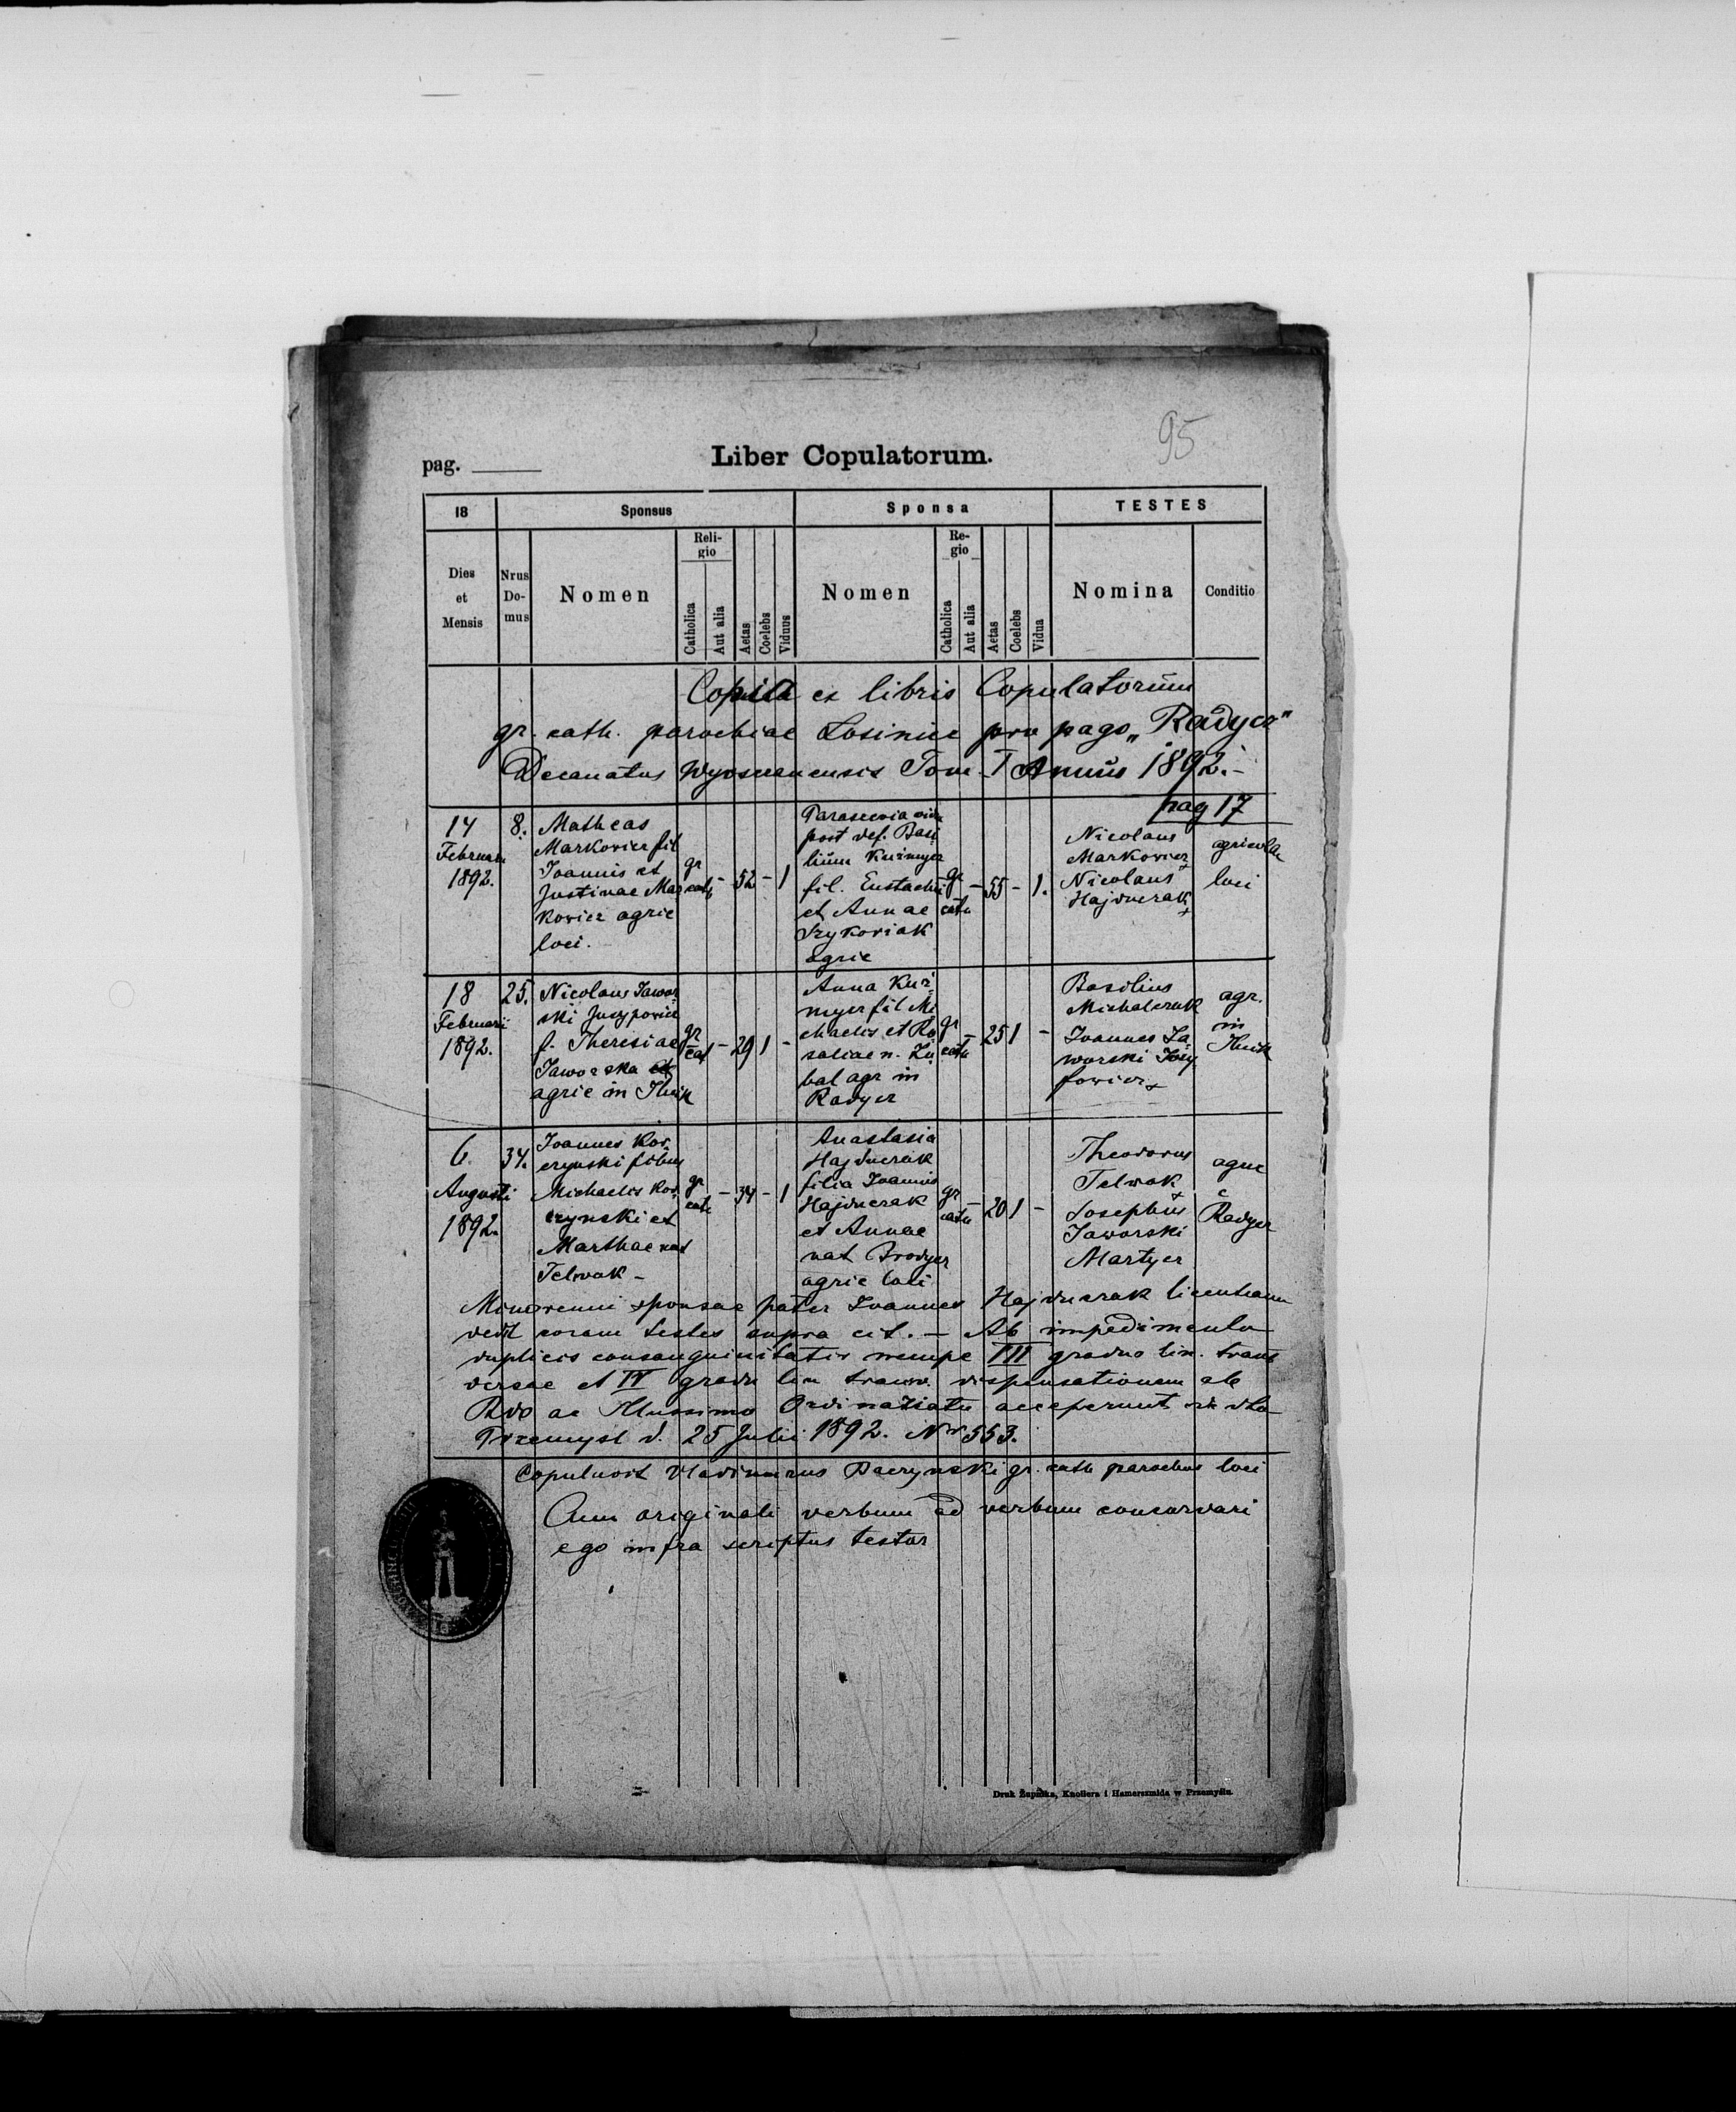 95
pag.
Liber Copulatorum.
18
Sponsus
Sponsa
TESTES
Dies
et
Mensis
Nrus
Do-
mus
Nomen
Reli-
gio
Catholica
Aut alia
Aetas
Coelebs
Viduus
Nomen
Re-
gio
Catholica
Aut alia
Aetas
Coelebs
Vidua
Nomina
Conditio
Copia ex libris Copulatorum
gr. cath. parochiae Losiniec pro pago „Radycz"
Decanatus Wysocanensis Tom. I Annus 1892.-
pag 17
14
Februarii
1892.
8.
Matheas
Markovicz fil
Joannis et
Justinae Mar
kovicz agric
loci.
gr
cath
-
52
-
1
Parascevia vidu
post def. Basi
lium Kuzmycz
fil. Eustachii
et Annae
Szykoriak
agric
gr
cath
-
55
-
1.
Nicolaus
Markovicz
+
Nicolaus
Hajduczak
+
agricolae
loci
18
Februarii
1892.
25.
Nicolaus Jawor
ski Juzypovicz
f. Theresiae
Jaworska
agric in
gr
cat
-
29
1
-
Anna Kuz
mycz fil Mi
chaelis et Ro
saliae n. Zu
bal agr in
Radycz
gr
cath
-
25
1
-
Basilius
Michalczak
Joannes Ja
worski Jozy
fovicz +
agr.
in
6.
Augusti
1892.
34.
Joannes Kor
czynski filius
Michaelis Kor
czynski et
Marthae nat
Telwak -
gr
cath
-
34
-
1
Anastasia
Hajduczak
filia Joannis
Hajduczak
et Annae
nat Brodycz
agric loci
gr
cath
-
20
1
-
Theodorus
Telwak
+
Josephus
Jaworski
Martycz
agric
e
Radycz
Minorenni sponsae pater Joannes Hajduczak licentiam
dedit coram testes supra cit. - Ab impedimento
duplicis consanguinitatis nempe III gradus lin. trans
versae et IV gradu lin transv. dispensationem ab
Rvdo ac Illussimo Ordinariatu acceperunt de dto
Przemysl d. 25 Julii 1892. Nr 553.
Copulavit Vladimirus Baczynski gr. cath parochus loci
Cum originali verbum ad verbum concordari
ego infra scriptus testor
Druk Żupnika, Knollera i Hamerszmida w Przemyślu.